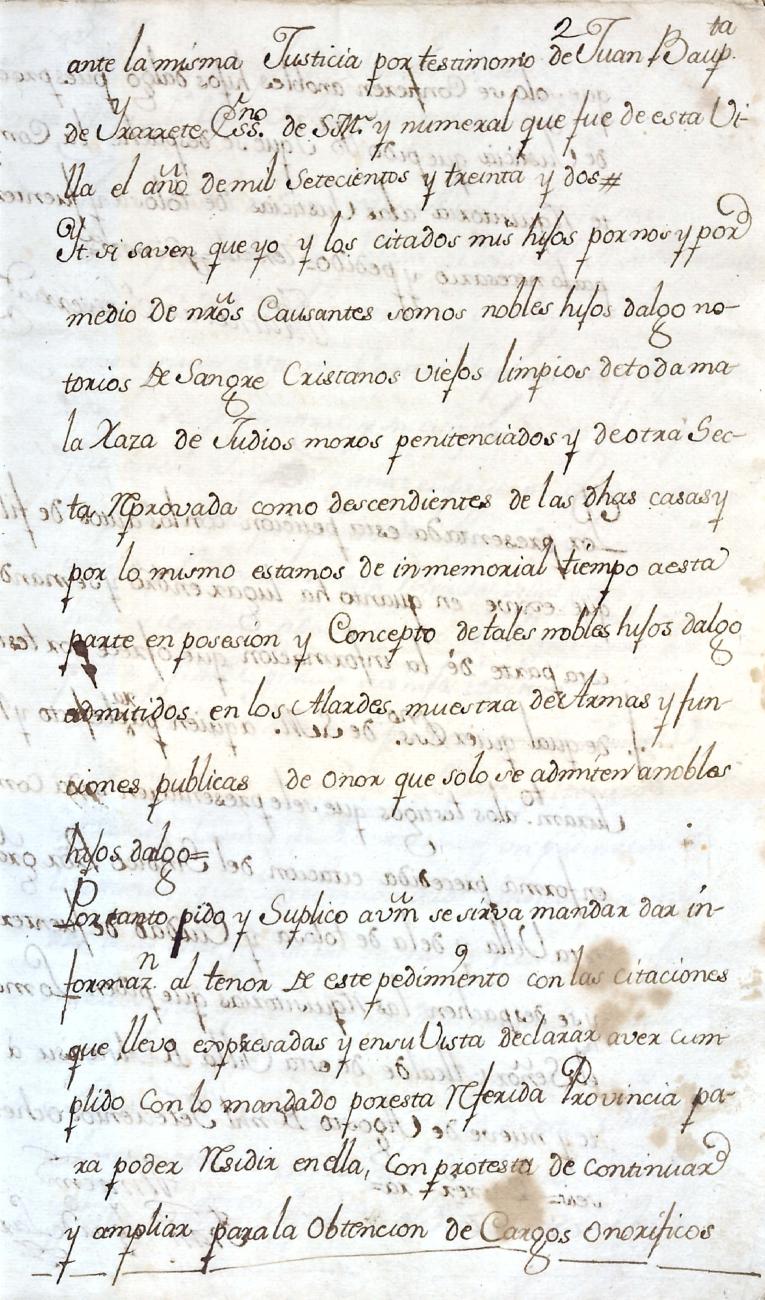 2
ante la misma Justicia por testimonio de Juan Baup.ta
de Yrarrete Ess.no de S.M. y numeral que fue de esta Vi-
lla el año de mil Setecientos y treinta y dos#
Yt. si saven que yo y los citados mis hijos por nos y por
medio de nrõs Causantes somos nobles hijos dalgo no-
torios de Sangre Cristanos viejos limpios de toda ma-
la Raza de Judios moros penitenciados y de otra Sec-
ta Reprovada como descendientes de las dhas casas y
por lo mismo estamos de inmemorial tiempo a esta
parte en posesion y Concepto de tales nobles hijos dalgo
admitidos en los Alardes muestra de Armas y fun-
ciones publicas de onor que solo se admiten a nobles
hijos dalgo=
Por tanto pido y Suplico a vm̃ se sirva mandar dar in-
formaz.n al tenor de este pedimento con las citaciones
que llevo expresadas y en su Vista declarar aver cum-
plido con lo mandado por esta Referida Provincia pa-
ra poder Residir en ella, con protesta de continuar
y ampliar para la Obtencion de Cargos onorificos